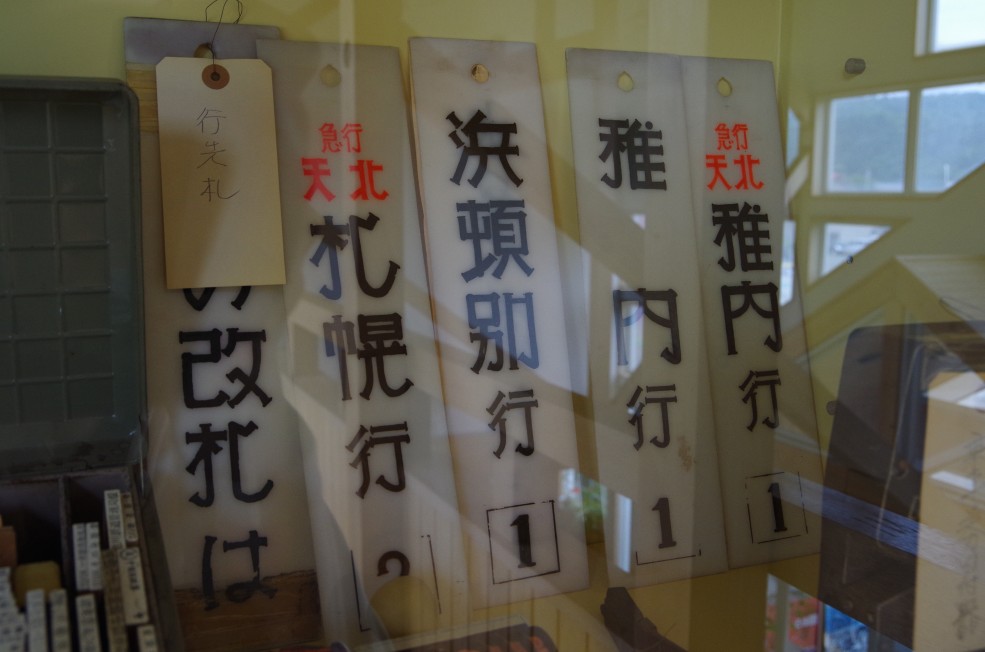 行先札
の改札は
急行
天北
札幌行
浜頓別行
1
稚内行
1
急行
天北
稚内行
1